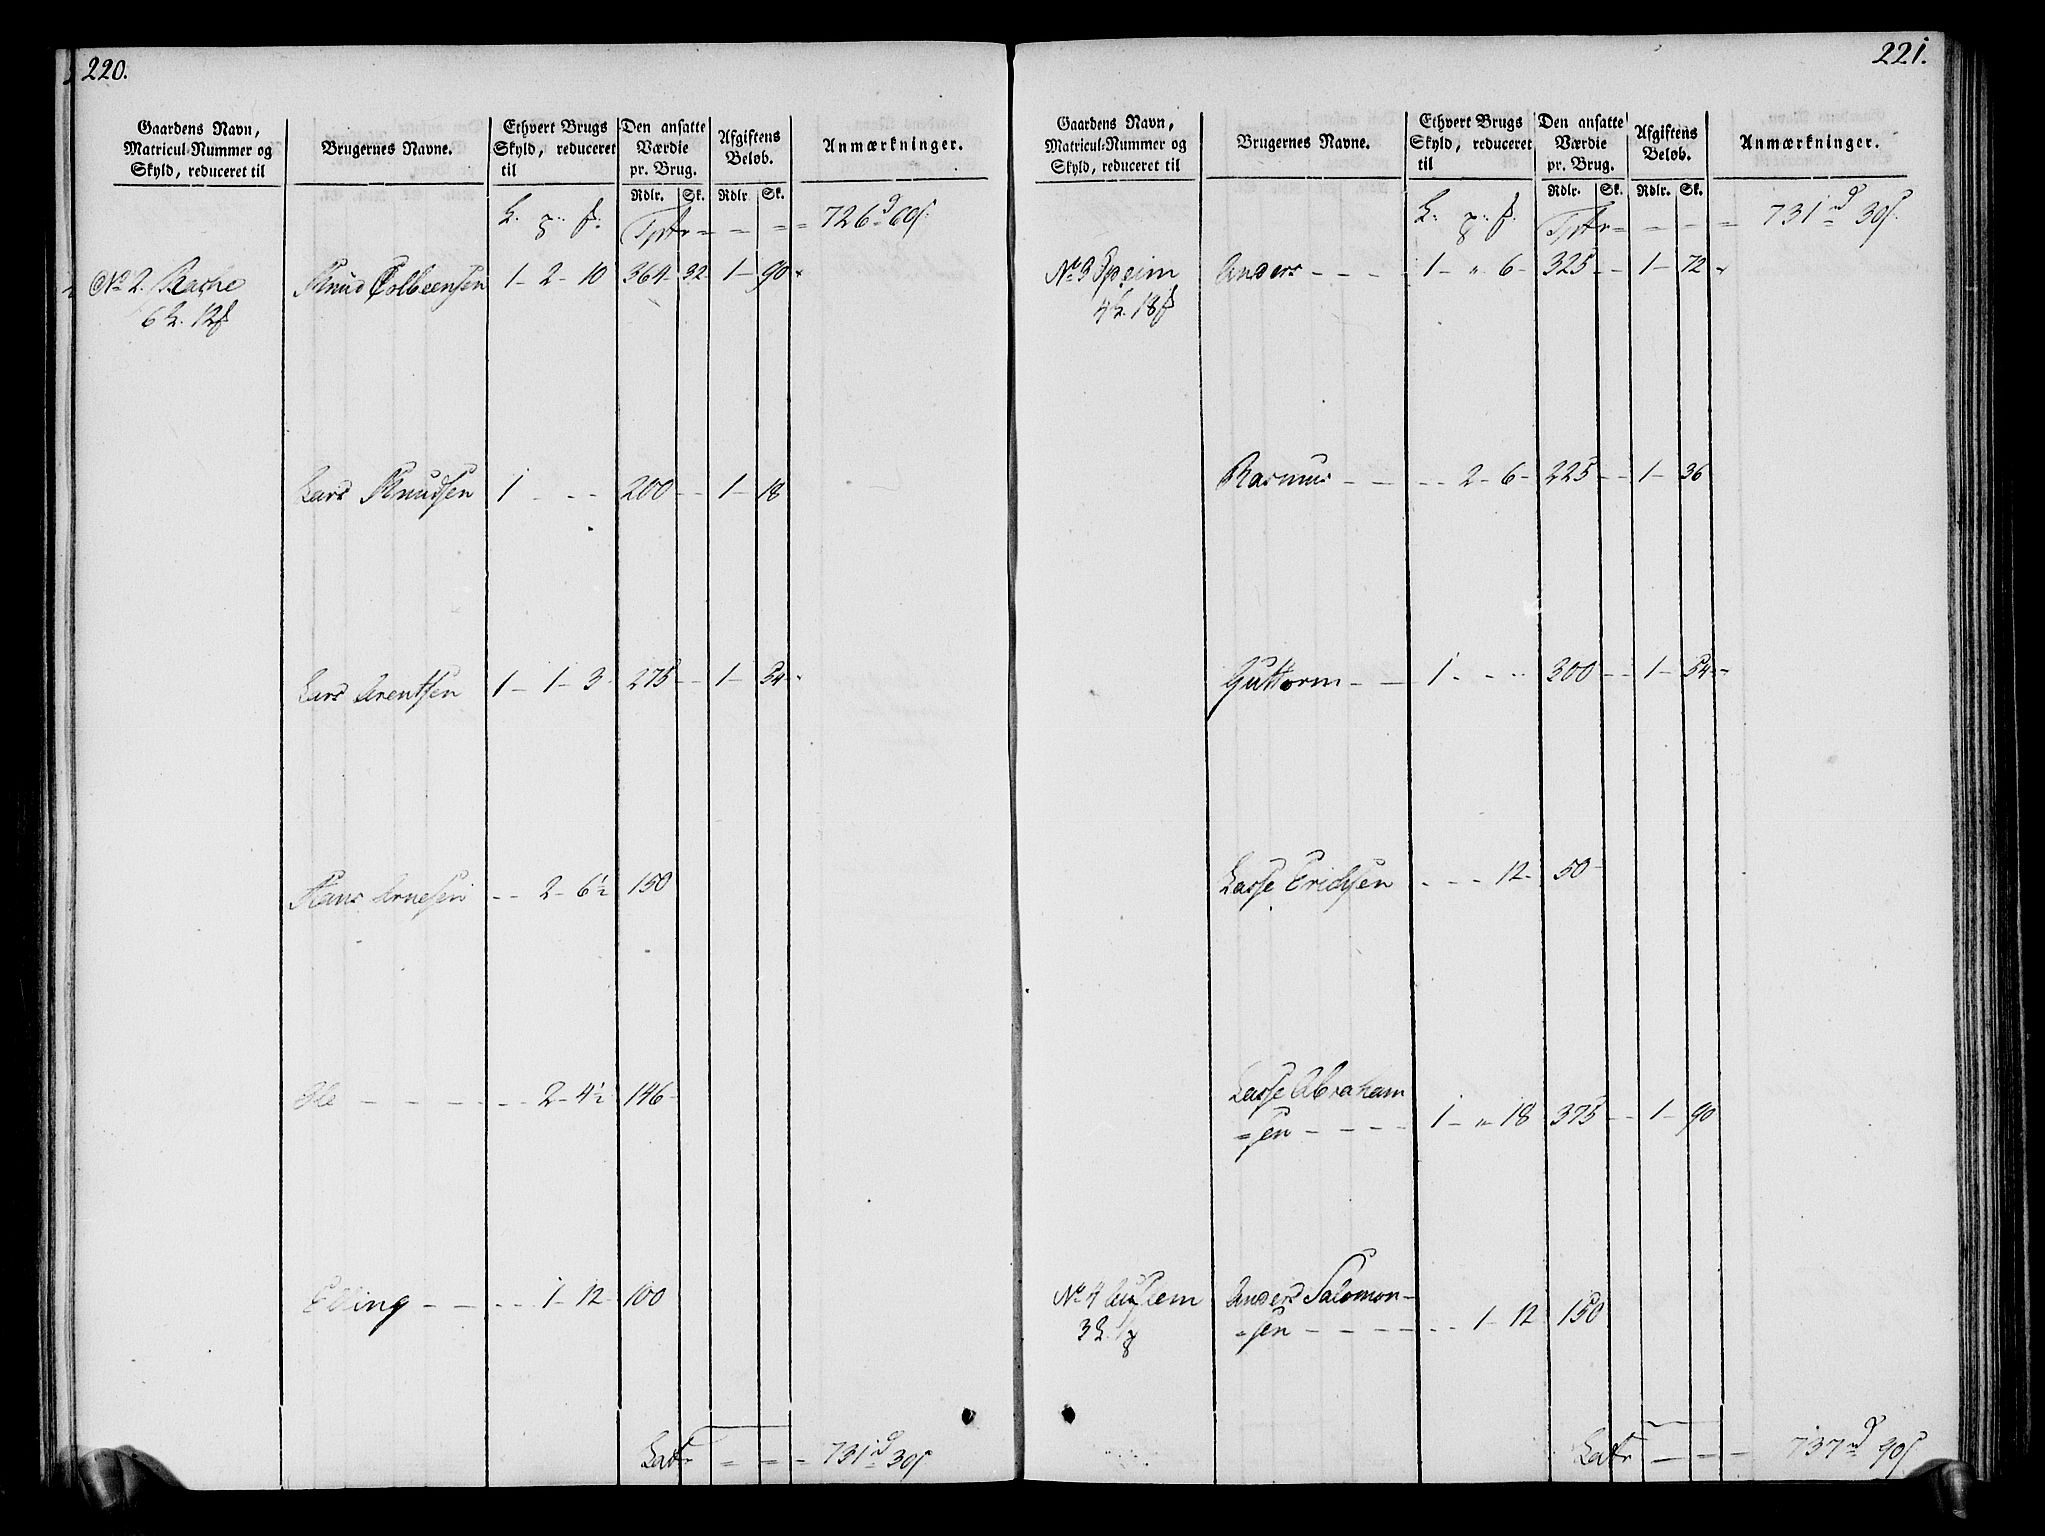 220.
Gaardens Navn, Matricul-Nummer og Skyld, reduceret til | Brugernes Navne. | Ethvert Brugs Skyld, reduceret til | Den ansatte Værdie pr. Brug. | Afgiftens Beløb. | Anmærkninger.
Rdlr. | Sk. | Rdlr | Sk.
L. f. Tptr = - = = 726 d 60 s.
No 2. 1 - 2 - 10 364 - 32 - 1 - 90
6 L. 12 f
Lars Knudsen 1 - - - 200 - - 1 - 18
Lars Arentsen 1 - 1 - 3 275 - - 1 - 54
Hans Arnesen - - 2 - 6½ 150
Ole - - - - - - 2 - 4½ 146
Elling - - - - 1 - 12 - 100
Latr = = = 731 d 30 s
221.
Gaardens Navn, Matricul-Nummer og Skyld, reduceret til | Brugernes Navne. | Ethvert Brugs Skyld, reduceret til | Den ansatte Værdie pr. Brug. | Afgiftens Beløb. | Anmærkninger.
Rdlr. | Sk. | Rdlr. | Sk.
L. f. Tptr = = - - = 731 d 30 s.
No 3 Opeim Anders - - - 1 - " 6 - 325 - - 1 - 72
4 L. 18 f
Rasmus - - - - 2 - 6 - 225 - - 1 - 36
Guttorm - - 1 - - - 300 - - 1 - 54
Lasse Erichsen - - - 12 - 50
Lasse Abraham
=sen - - - - 1 - " 18 375 - - 1 - 90
No 4 Anders Salomon-
3 L. 1 =sen - - - - - 1 - 12 150
Latr - - - 737 d 90 s